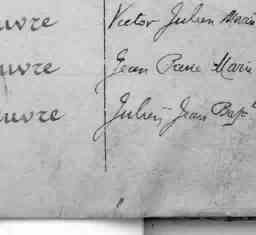 uvre Victor Julien Marie
uvre Jean Pierre Marie
uvre Julien Jean Bapt